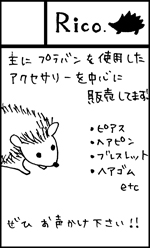 Rico.
主にプラバンを使用した
アクセサリーを中心に
販売してます!
・ピアス
・ヘアピン
・ブレスレット
・ヘアゴム
etc
ぜひ お声かけ下さい!!